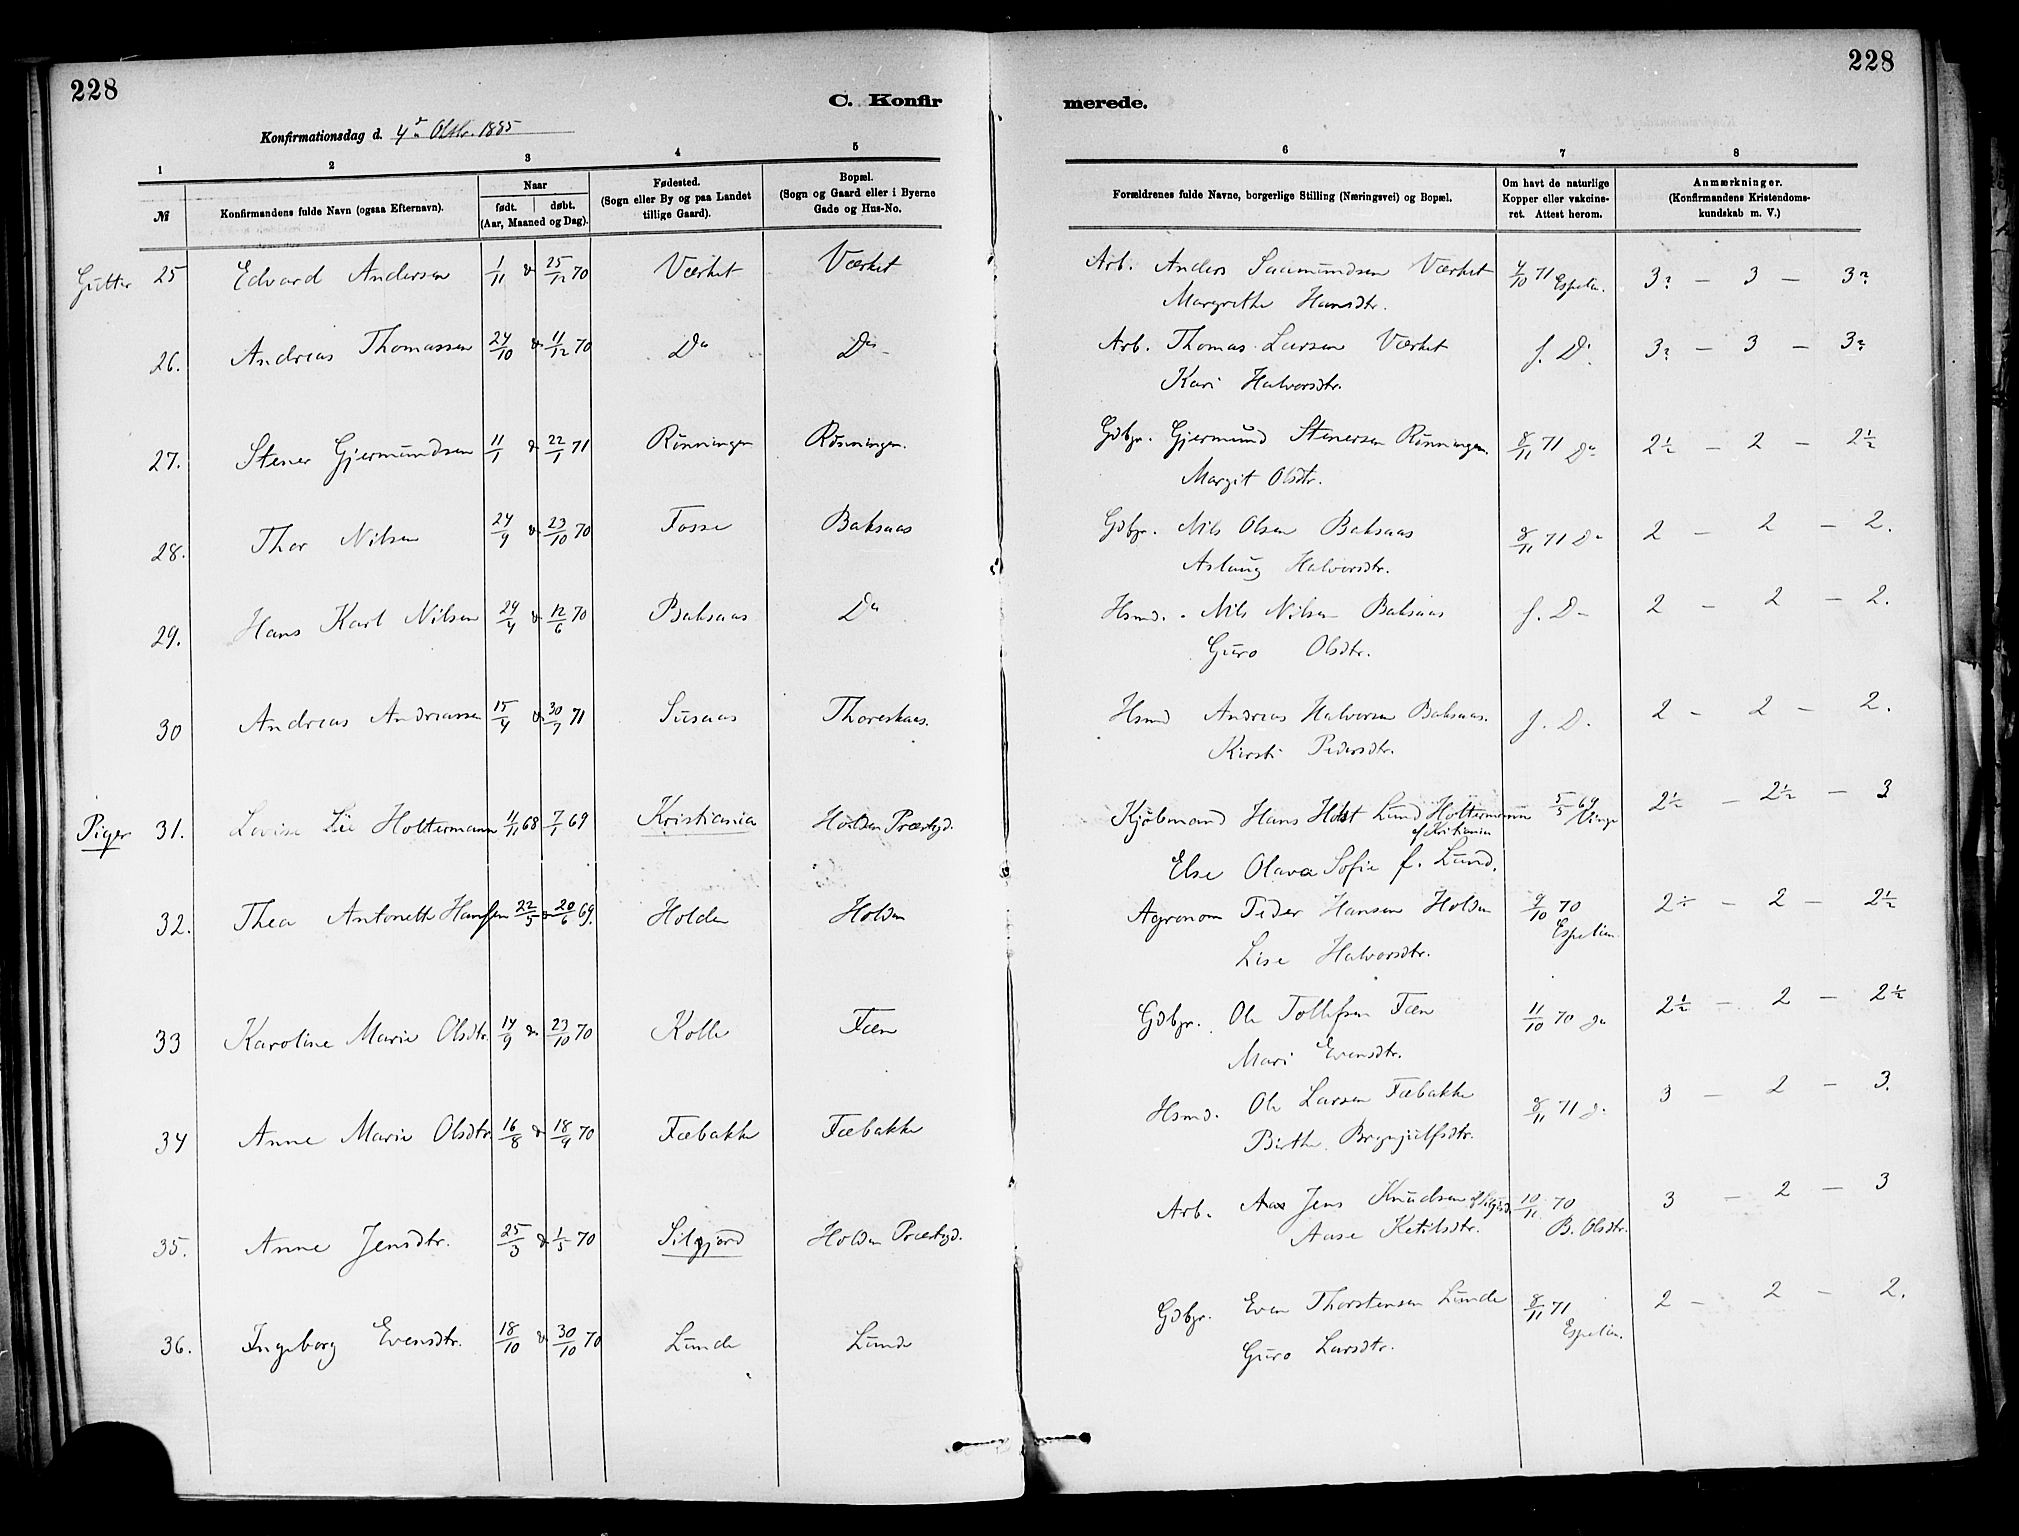 228
228
C. Konfir
merede.
Konfirmationsdag d. 4de Oktbr. 1885
1 2 3 4 5 6 7 8
№
Konfirmandens fulde Navn (ogsaa Efternavn).
Naar
født. døbt.
(Aar, Maaned og Dag).
Fødested.
(Sogn eller By og paa Landet
tillige Gaard).
Bopæl.
(Sogn og Gaard eller i Byerne
Gade og Hus-No.
Forældrenes fulde Navne, borgerlige Stilling (Næringsvei) og Bopæl.
Om havt de naturlige
Kopper eller vakcine-
ret. Attest herom.
Anmærkninger.
(Konfirmandens Kristendoms-
kundskab m. V.)
Gutter 25 Edvard Andersen 1/11 & 25/12 70 Værket Værket Arb. Anders Saamundsen Værket 4/10 71 Espelien. 3? – 3 – 3?
Margrethe Hansdtr.
26. Andreas Thomassen 24/10 & 11/12 70 Do Do Arb. Thomas Larsen Værket f. Do 3? – 3 – 3?
Kari Halvorsdtr.
27. Stener Gjermundsen 11/1 & 22/1 71 Rönningen Rönningen. Gdbgr. Gjermund Stenersen Rönningen. 8/11 71 Do 2½ – 2 – 2½
Margit Olsdtr.
28. Thor Nilsen 24/9 & 23/10 70 Fosse Baksaas Gdbgr. Nils Olsen Baksaas 8/11 71 Do 2 – 2 – 2.
Aslaug Halvorsdtr.
29. Hans Karl Nilsen 24/4 & 12/6 70 Baksaas Do Hsmd. Nils Nilsen Baksaas f. D– 2 – 2 – 2.
Guro Olsdtr.
30 Andreas Andreassen 15/4 & 30/7 71 Susaas Thoreskaas. Hsmd Andreas Halvorsen Baksaas. f. D. 2 – 2 – 2.
Kirsti Pedersdtr.
Piger 31. Lovise Lie Holtermann 4/11 68 7/1 69 Kristiania Holden Præstgd. Kjöbmand Hans Holst Lund Holtermann 5/5 69 Vinge 2½ – 2½ – 3
af Kristiania
Else Olava Sofie f. Lund.
32. Thea Antonette Hansen 22/5 & 20/6 69. Holden Holden Agronom Peder Hansen Holden 9/10 70 2½ – 2 – 2½
Espelien.
Lise Halvorsdtr.
33 Karoline Marie Olsdtr. 14/9 & 23/10 70 Kolle Fæn Gdbgr. Ole Tollefsen Fæn 11/10 70 do 2½ – 2 – 2½
Mari Evensdtr.
34 Anne Marie Olsdtr. 16/8 & 18/9 70 Fæbakke Fæbakke Hsmd. Ole Larsen Fæbakke 8/11 71 d– 3 – 2 – 3.
Birthe Brynjulfsdtr.
35. Anne Jensdtr. 25/3 & 1/5 70 Silgjord Holden Præstgd. Arb. Jens Knudsen af Silgjord 10/11 70 3 – 2 – 3
Aase Ketilsdtr. B. Olsdtr.
36. Ingeborg Evensdtr. 18/10 & 30/10 70 Lunde Lunde Gdbgr. Even Thorstensen Lunde 8/11 71 2 – 2 – 2.
Espelien.
Guro Larsdtr.